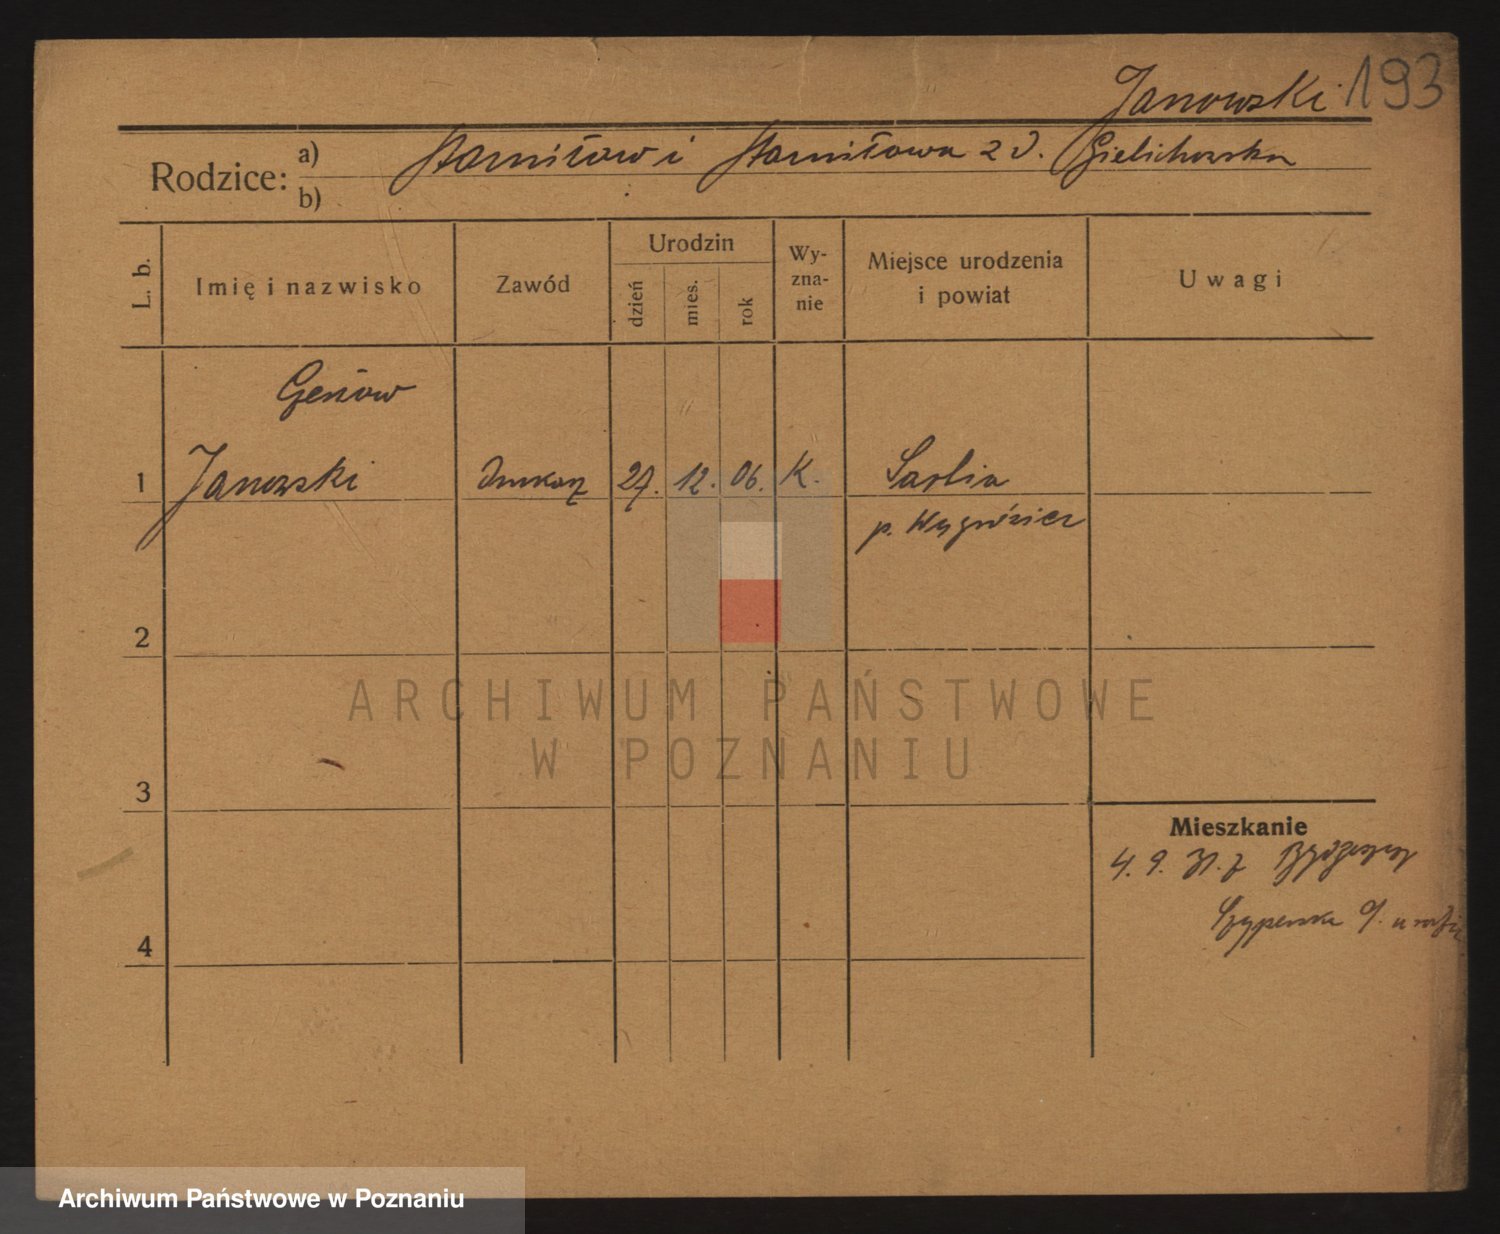 Janowski 193
Rodzice: a) Stanisław i Stanisława z d. Gielichowska
b)
L. b.
Imię i nazwisko
Zawód
Urodzin
dzień
mies.
rok
Wy-
zna-
nie
Miejsce urodzenia
i powiat
Uwagi
1 Janowski drukarz 27. 12. 06. K. Sarbia
p. Wągrówiec
2
3
4
Mieszkanie
4. 9. 31. z Bydgoszczy
ARCHIWUM PAŃSTWOWE
W POZNANIU
Archiwum Państwowe w Poznaniu